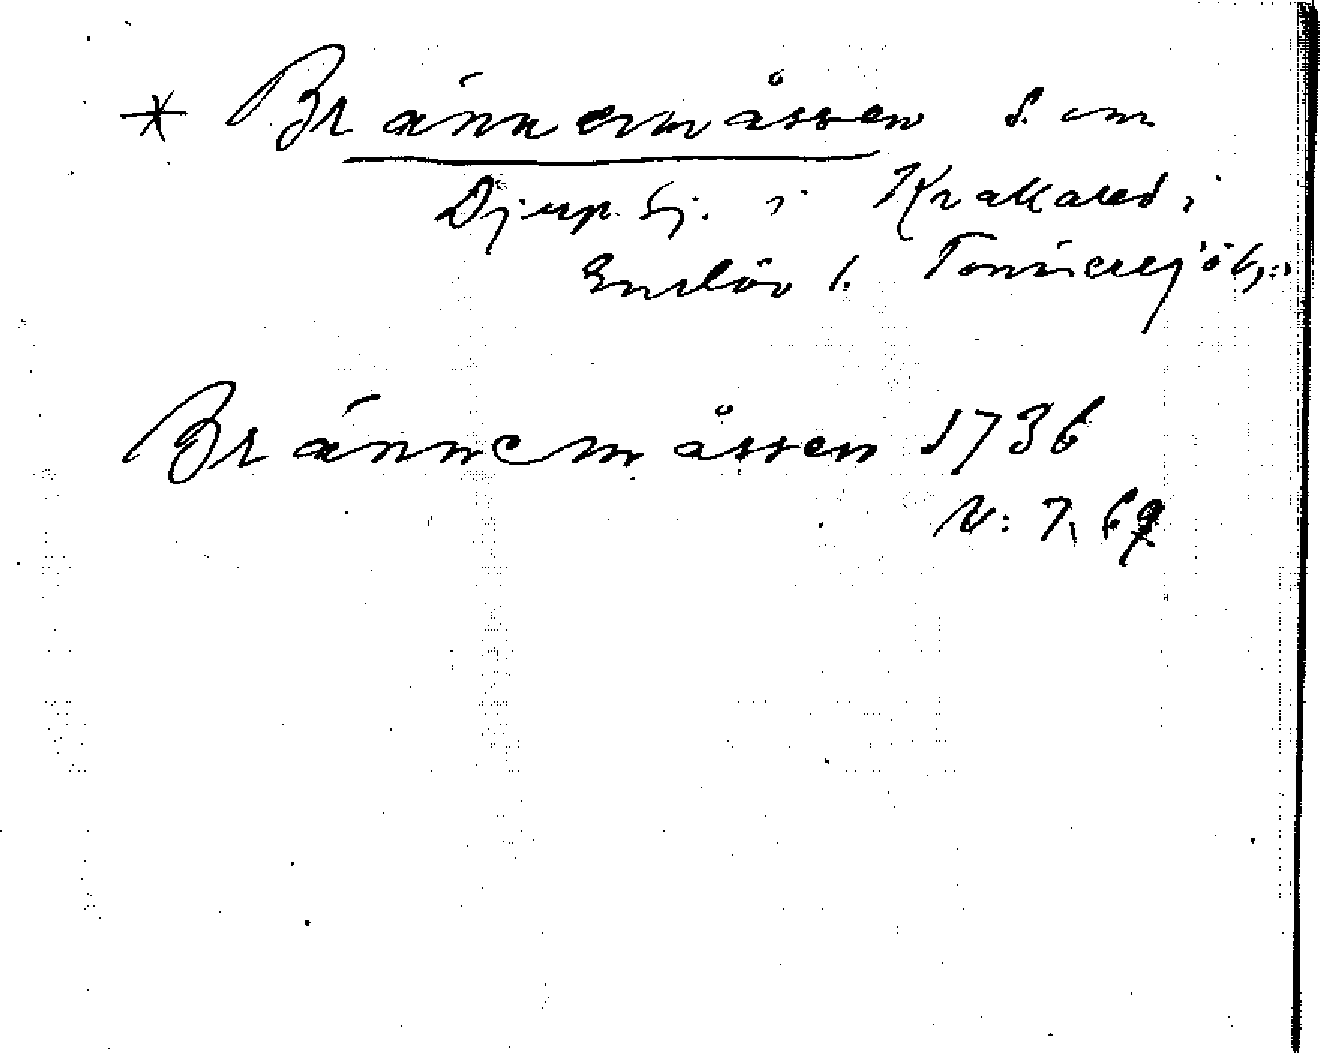 * Brännemåssen S. om
Djup. Sj. i Krakared i
Enslöv s. Tönnersjö h:
Brännemåssen 1736
V: 7, 69